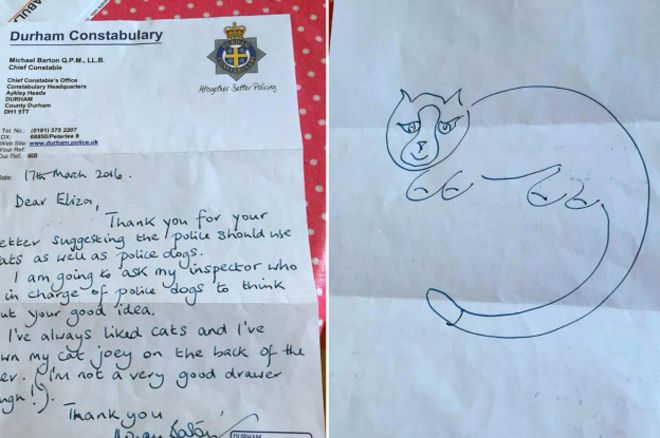 Durham Constabulary
Michael Barton Q.P.M., LL.B.
Chief Constable
Altogether Better Policing
Chief Constable's Office
Constabulary Headquarters
Aykley Heads
DURHAM
County Durham
DH1 5TT
Tel. No.: (0191) 375 2207
DX: 68850/Peterlee 8
Web Site: www.durham.police.uk
Your Ref:
Our Ref. MB
Date: 17th March 2016.
Dear Eliza,
Thank you for your
etter suggesting the police should use
ats as well as police dogs.
I am going to ask my inspector who
in charge of police dogs to think
out your good idea.
I've always liked cats and I've
wn my cat joey on the back of the
er. (I'm not a very good drawer
ugh!).
Thank you
DURHAM